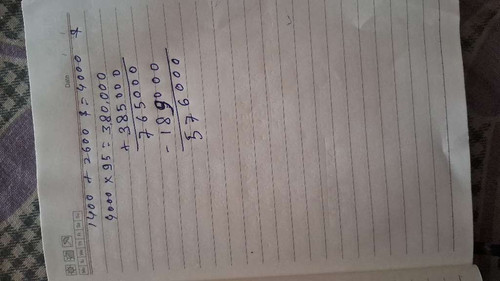 Date
1400 + 2600 $ = 4000 $
4000 × 95 = 3,80,000
+ 385000
765000
- 189000
576000